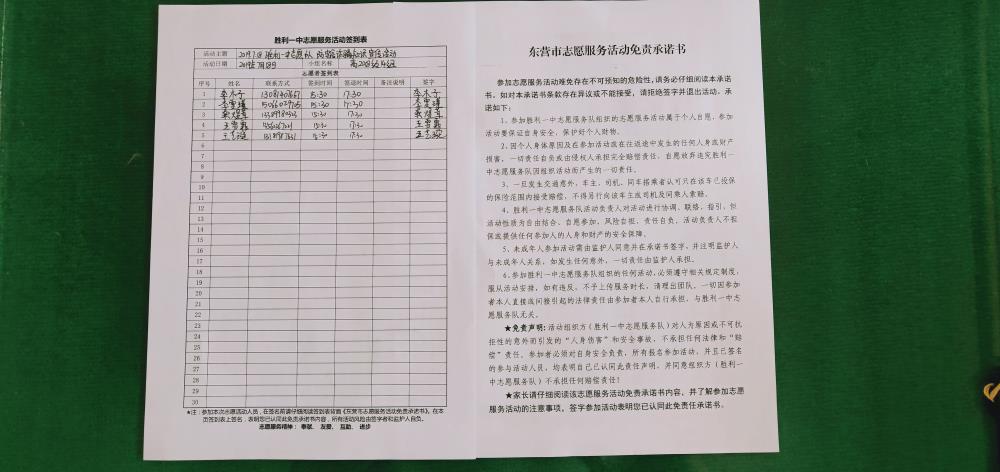 胜利一中志愿服务活动签到表
活动主题
活动日期 小组名称
志愿者签到表
序号 姓名 联系方式 签到时间 签退时间 备注说明 签字
1 李木子 15:30 17:30 李木子
2 15:30 17:30
3 15:30 17:30
4 15:30 17:30
5 15:30 17:30
6
7
8
9
10
11
12
13
14
15
16
17
18
19
20
21
22
23
24
25
26
27
28
29
30
*注:参加本次志愿活动人员,在签名前请仔细阅读签到表背面《东营市志愿服务活动免责承诺书》,在本
页签到表上签名,表明您已认同此免责承诺书内容,所有活动风险由签字者和监护人自负。
志愿服务精神: 奉献、 友爱、 互助、 进步
东营市志愿服务活动免责承诺书
参加志愿活动难免存在不可预知的危险性,请务必仔细阅读本承诺
书。如对本承诺书条款存在异议或不能接受,请拒绝签字并退出活动。承
诺如下:
1、参加胜利一中志愿服务队组织的志愿服务活动属于个人自愿,参加
活动要保证自身安全,保护好个人财物。
2、因个人身体原因及在参加活动或在往返途中发生的任何人身或财产
损害,一切责任自负或由侵权人承担完全赔偿责任。自愿放弃追究胜利一
中志愿服务队因组织活动而产生的一切责任。
3、一旦发生交通意外,车主、司机、同车搭乘者认可只在该车已投保
的保险范围内接受赔偿,不得另行向该车主或司机及同乘人索赔。
4、胜利一中志愿服务队活动负责人对活动进行协调、联络、指引,但
活动性质为自由结合、自愿参加、风险自担、责任自负,活动负责人不担
保或提供任何参加人的人身和财产的安全保障。
5、未成年人参加活动需由监护人同意并在承诺书签字,并注明监护人
与未成年人关系,如发生任何意外,一切责任由监护人承担。
6、参加胜利一中志愿服务队组织的任何活动,必须遵守相关规定制度,
服从活动安排,如有违反,不予上传服务时长,清理出团队。一切因参加
者本人直接或间接引起的法律责任由参加者本人自行承担,与胜利一中志
愿服务队无关。
★免责声明:活动组织方(胜利一中志愿服务队)对人为原因或不可抗
拒性的意外而引发的“人身伤害”和安全事故,不承担任何法律和“赔
偿”责任。参加者必须对自身安全负责,所有报名参加活动,并且已签名
的参与活动人员,均表明自己已认同此责任声明,并同意组织方(胜利一
中志愿服务队)不承担任何赔偿责任!
★家长请仔细阅读该志愿服务活动免责承诺书内容,并了解参加志愿
服务活动的注意事项,签字参加活动表明您已认同此免责任承诺书。